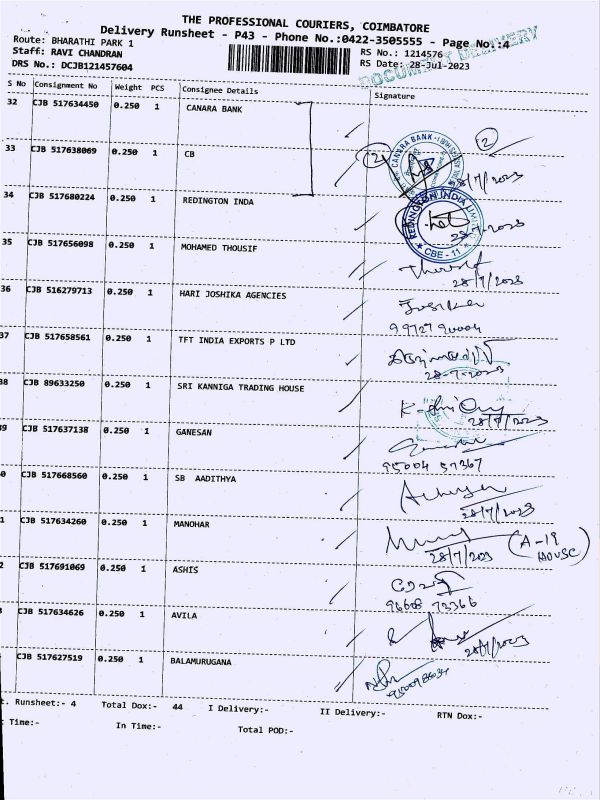 THE PROFESSIONAL COURIERS, COIMBATORE
Delivery Runsheet - P43 - Phone No.:0422-3505555 - Page No.:4
DOCUMENT DELIVERY
Route: BHARATHI PARK 1 RS No.: 1214576
Staff: RAVI CHANDRAN RS Date: 28-Jul-2023
DRS No.: DCJB121457604
S No Consignment No Weight PCS Consignee Details Signature
32 CJB 517634450 0.250 1 CANARA BANK
CANARA BANK
33 CJB 517638069 0.250 1 CB 2 2
28/7/2023
34 CJB 517680224 0.250 1 REDINGTON INDA
REDINGTON INDIA
28-7-2023
CBE - 11
35 CJB 517656098 0.250 1 MOHAMED THOUSIF
28/7/2023
36 CJB 516279713 0.250 1 HARI JOSHIKA AGENCIES
37 CJB 517658561 0.250 1 TFT INDIA EXPORTS P LTD
28-7-2023
38 CJB 89633250 0.250 1 SRI KANNIGA TRADING HOUSE
28/7/2023
39 CJB 517637138 0.250 1 GANESAN
95004 57367
0 CJB 517668560 0.250 1 SB AADITHYA
28/7/2023
1 CJB 517634260 0.250 1 MANOHAR
28/7/2023 (A-19 HOUSE)
2 CJB 517691069 0.250 1 ASHIS
CJB 517634626 0.250 1 AVILA
28/7/2023
CJB 517627519 0.250 1 BALAMURUGANA
t. Runsheet:- 4 Total Dox:- 44 I Delivery:- II Delivery:- RTN Dox:-
Time:- In Time:- Total POD:-